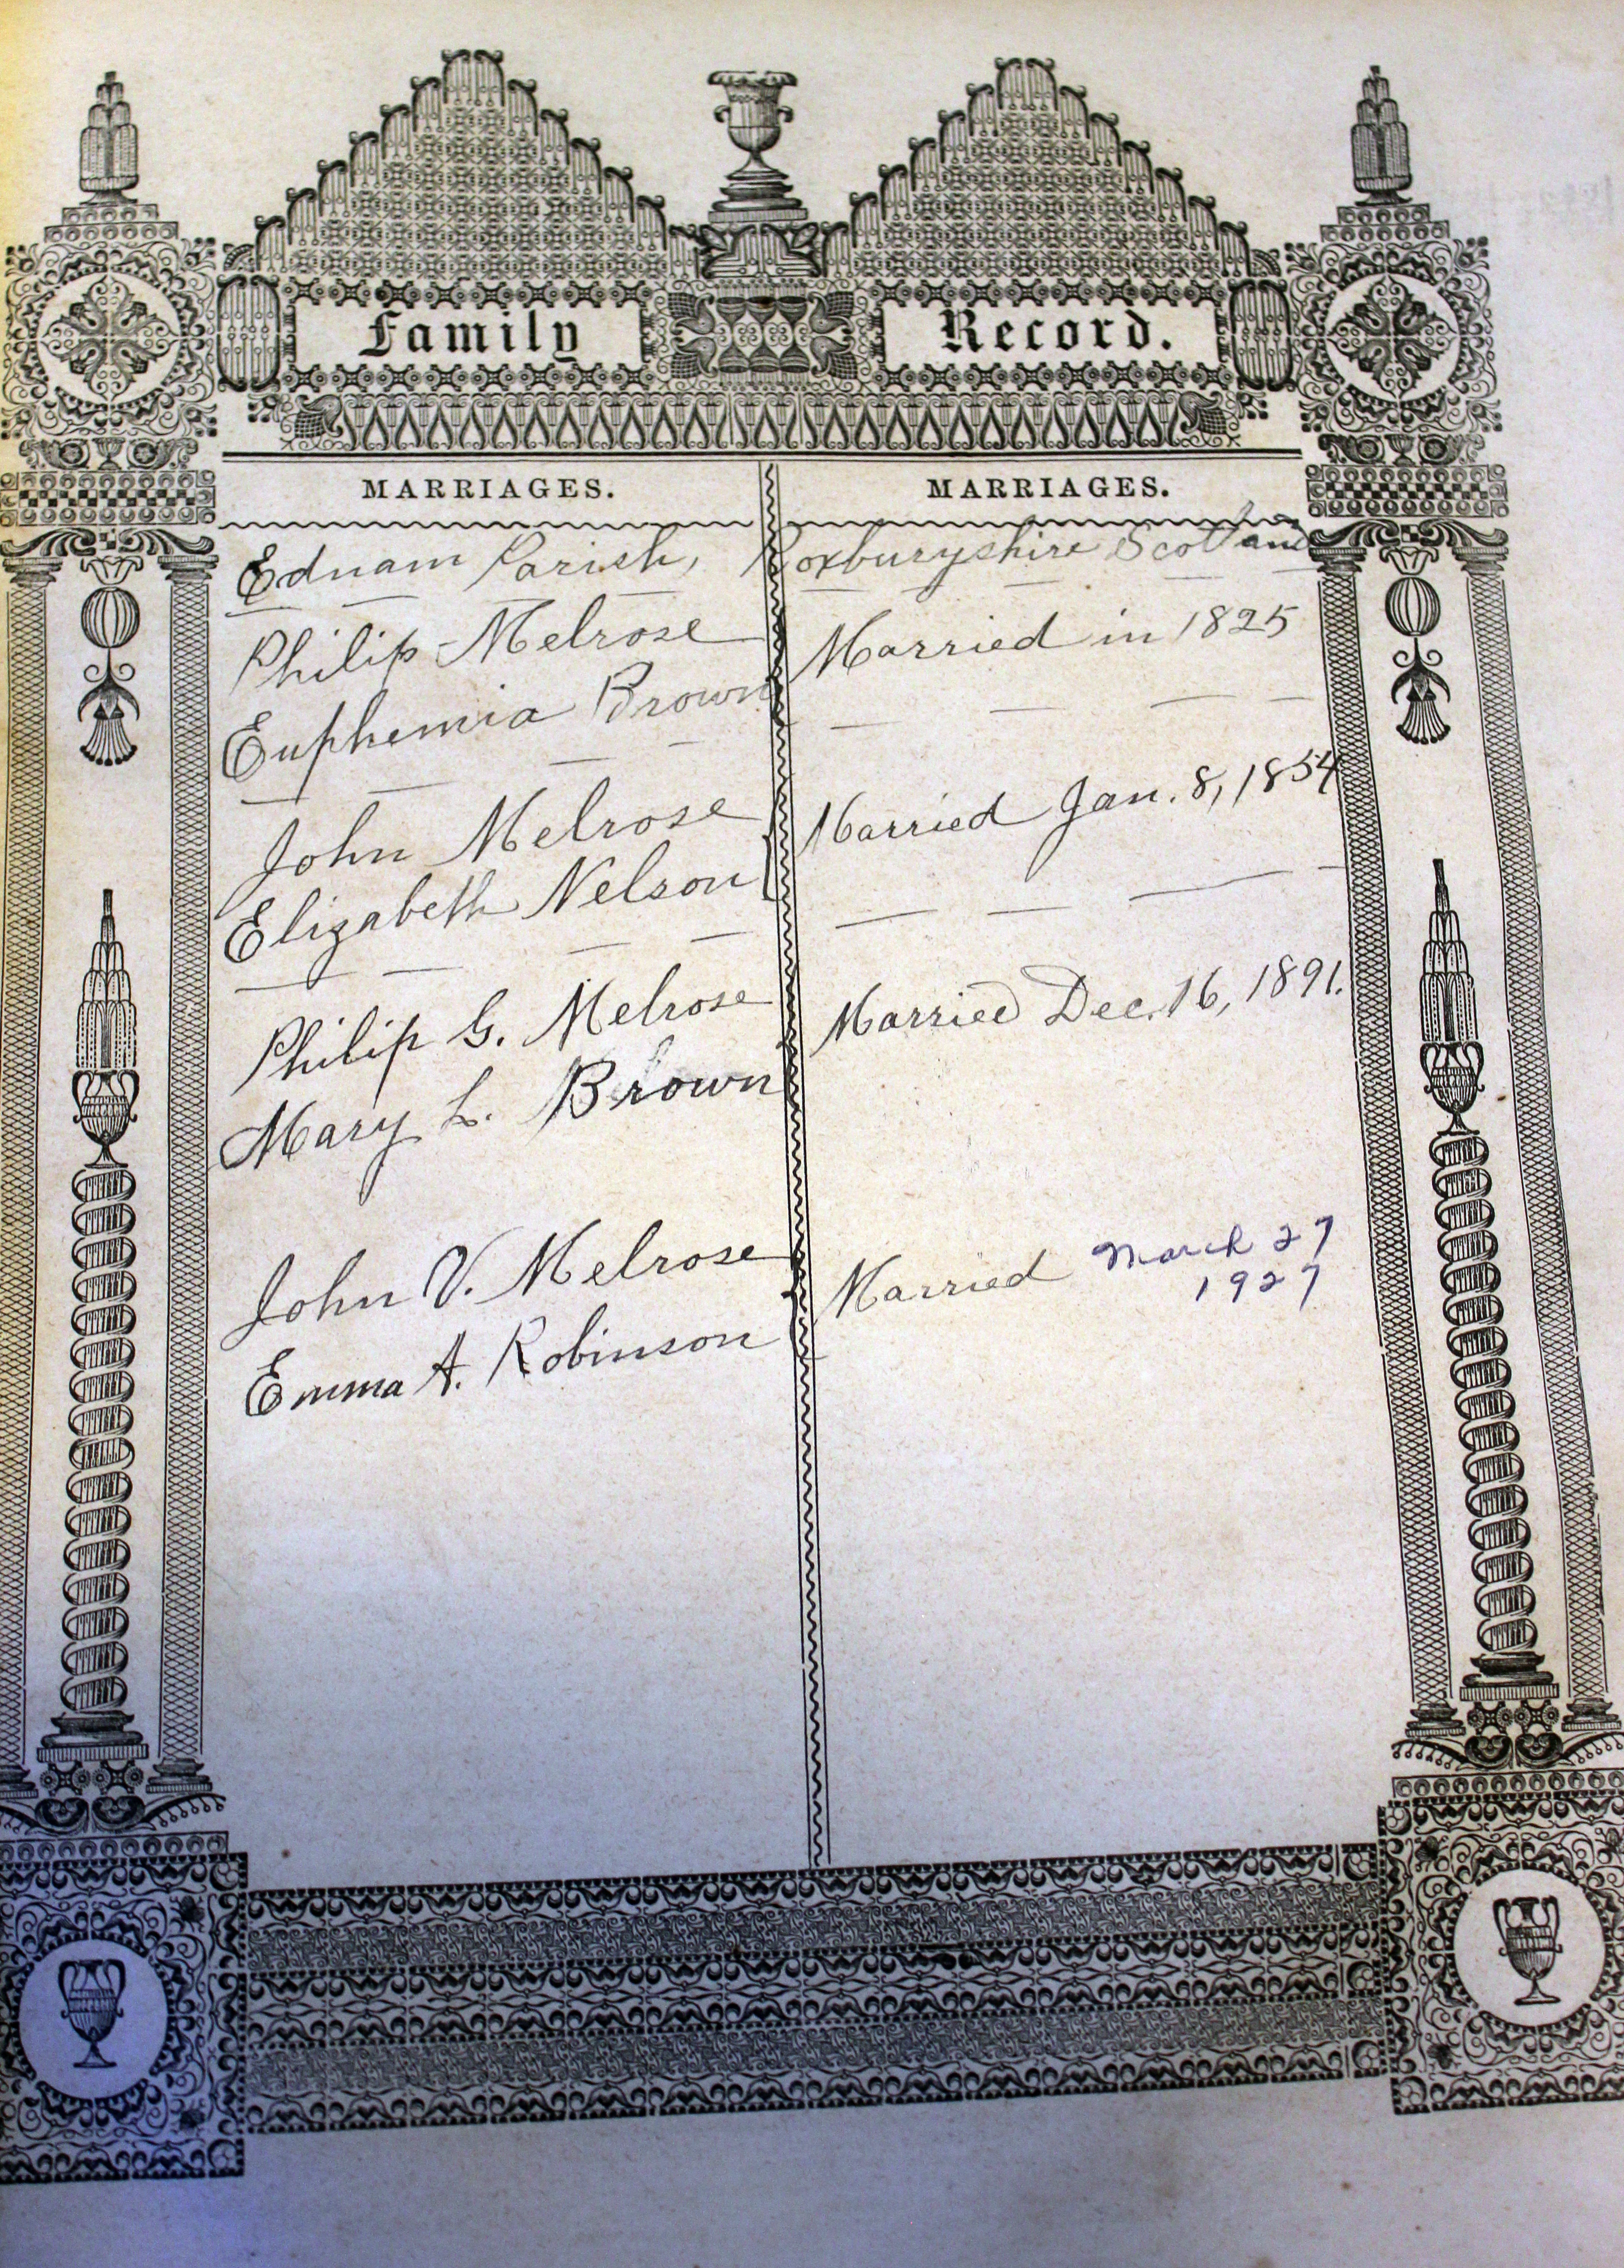 Family Record.
MARRIAGES. MARRIAGES.
Ednam Parish, Roxburyshire Scotland
Philip Melrose Married in 1825
Euphemia Brown
John Melrose Married Jan. 8, 1854
Elizabeth Nelson
Philip G. Melrose Married Dec. 16, 1891.
Mary L. Brown
John V. Melrose Married March 27
1927
Emma A. Robinson